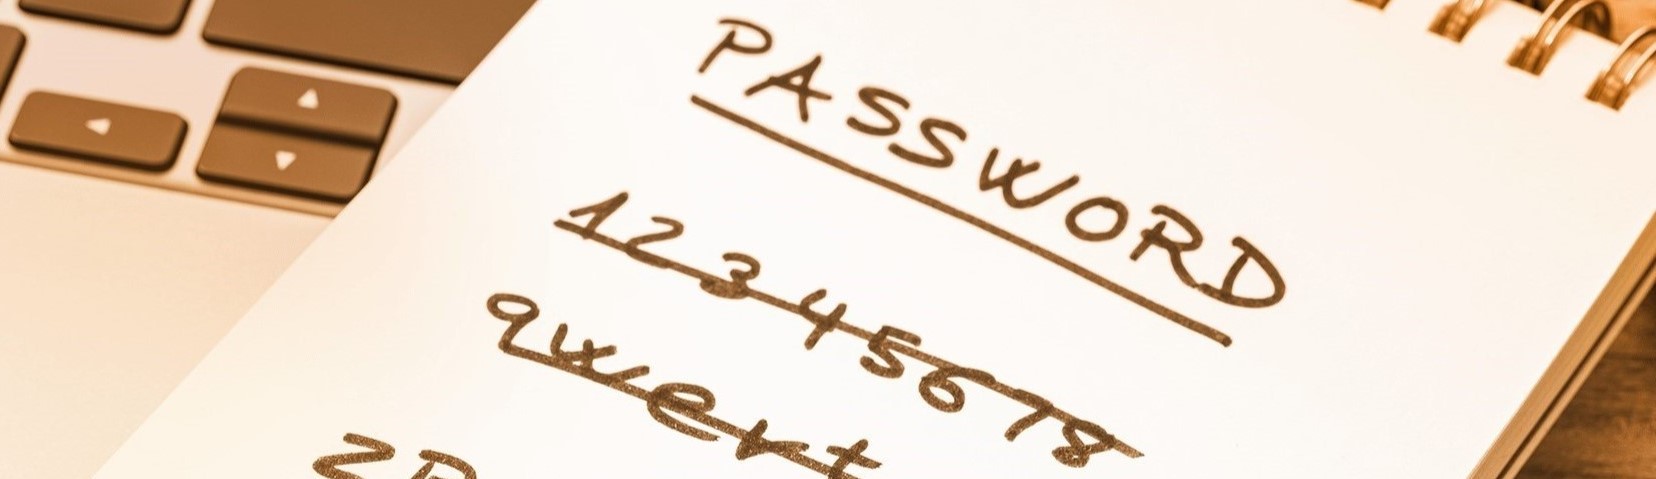 PASSWORD
12345678
qwert